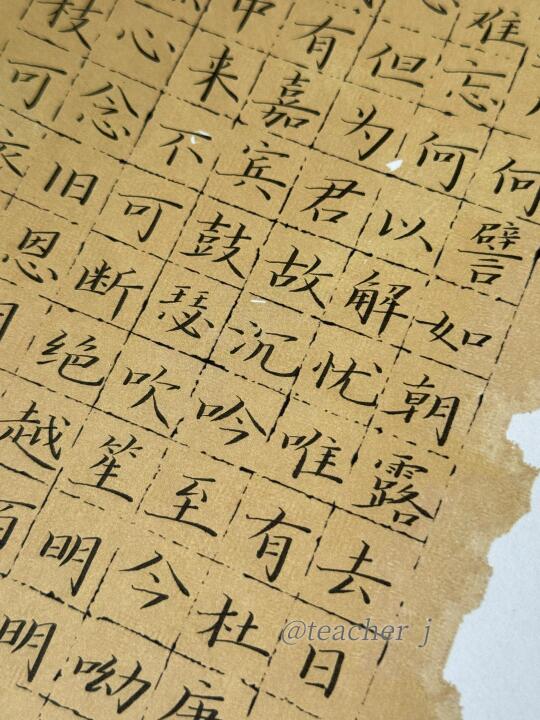 何譬如朝露去日
难忘何以解忧唯有杜康
但为君故沉吟至今呦
有嘉宾鼓瑟吹笙明明
中来不可断绝越
心念旧恩
枝可
@teacher j